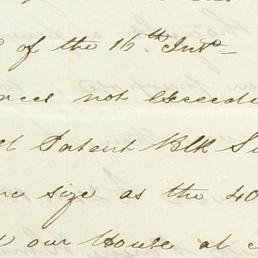 of the 16th Inst
not exceedi
Patent Blk S
size as the 40
our House at